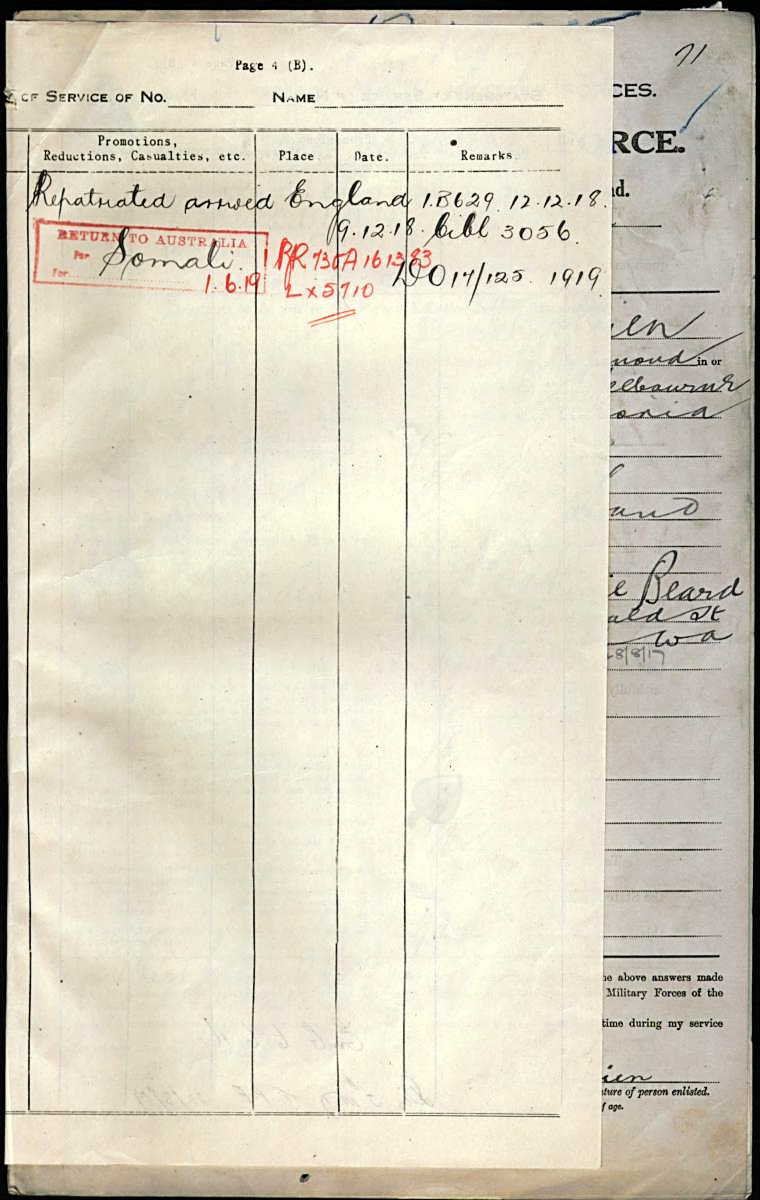 71
Page 4 (B).
OF SERVICE OF NO. NAME
CES.
RCE.
d.
Promotions,
Reductions, Casualties, etc. Place Date. Remarks
Repatriated arrived England 1.B629. 12.12.18.
9.12.18. 3056.
RETURN TO AUSTRALIA
Per Somali.
For
1.6.19
LX5710
DO 17/125. 1919.
in or
elbourne
oria
and
Beard
St
WA
8/8/17
e above answers made
Military Forces of the
time during my service
ien
ture of person enlisted.
f age.